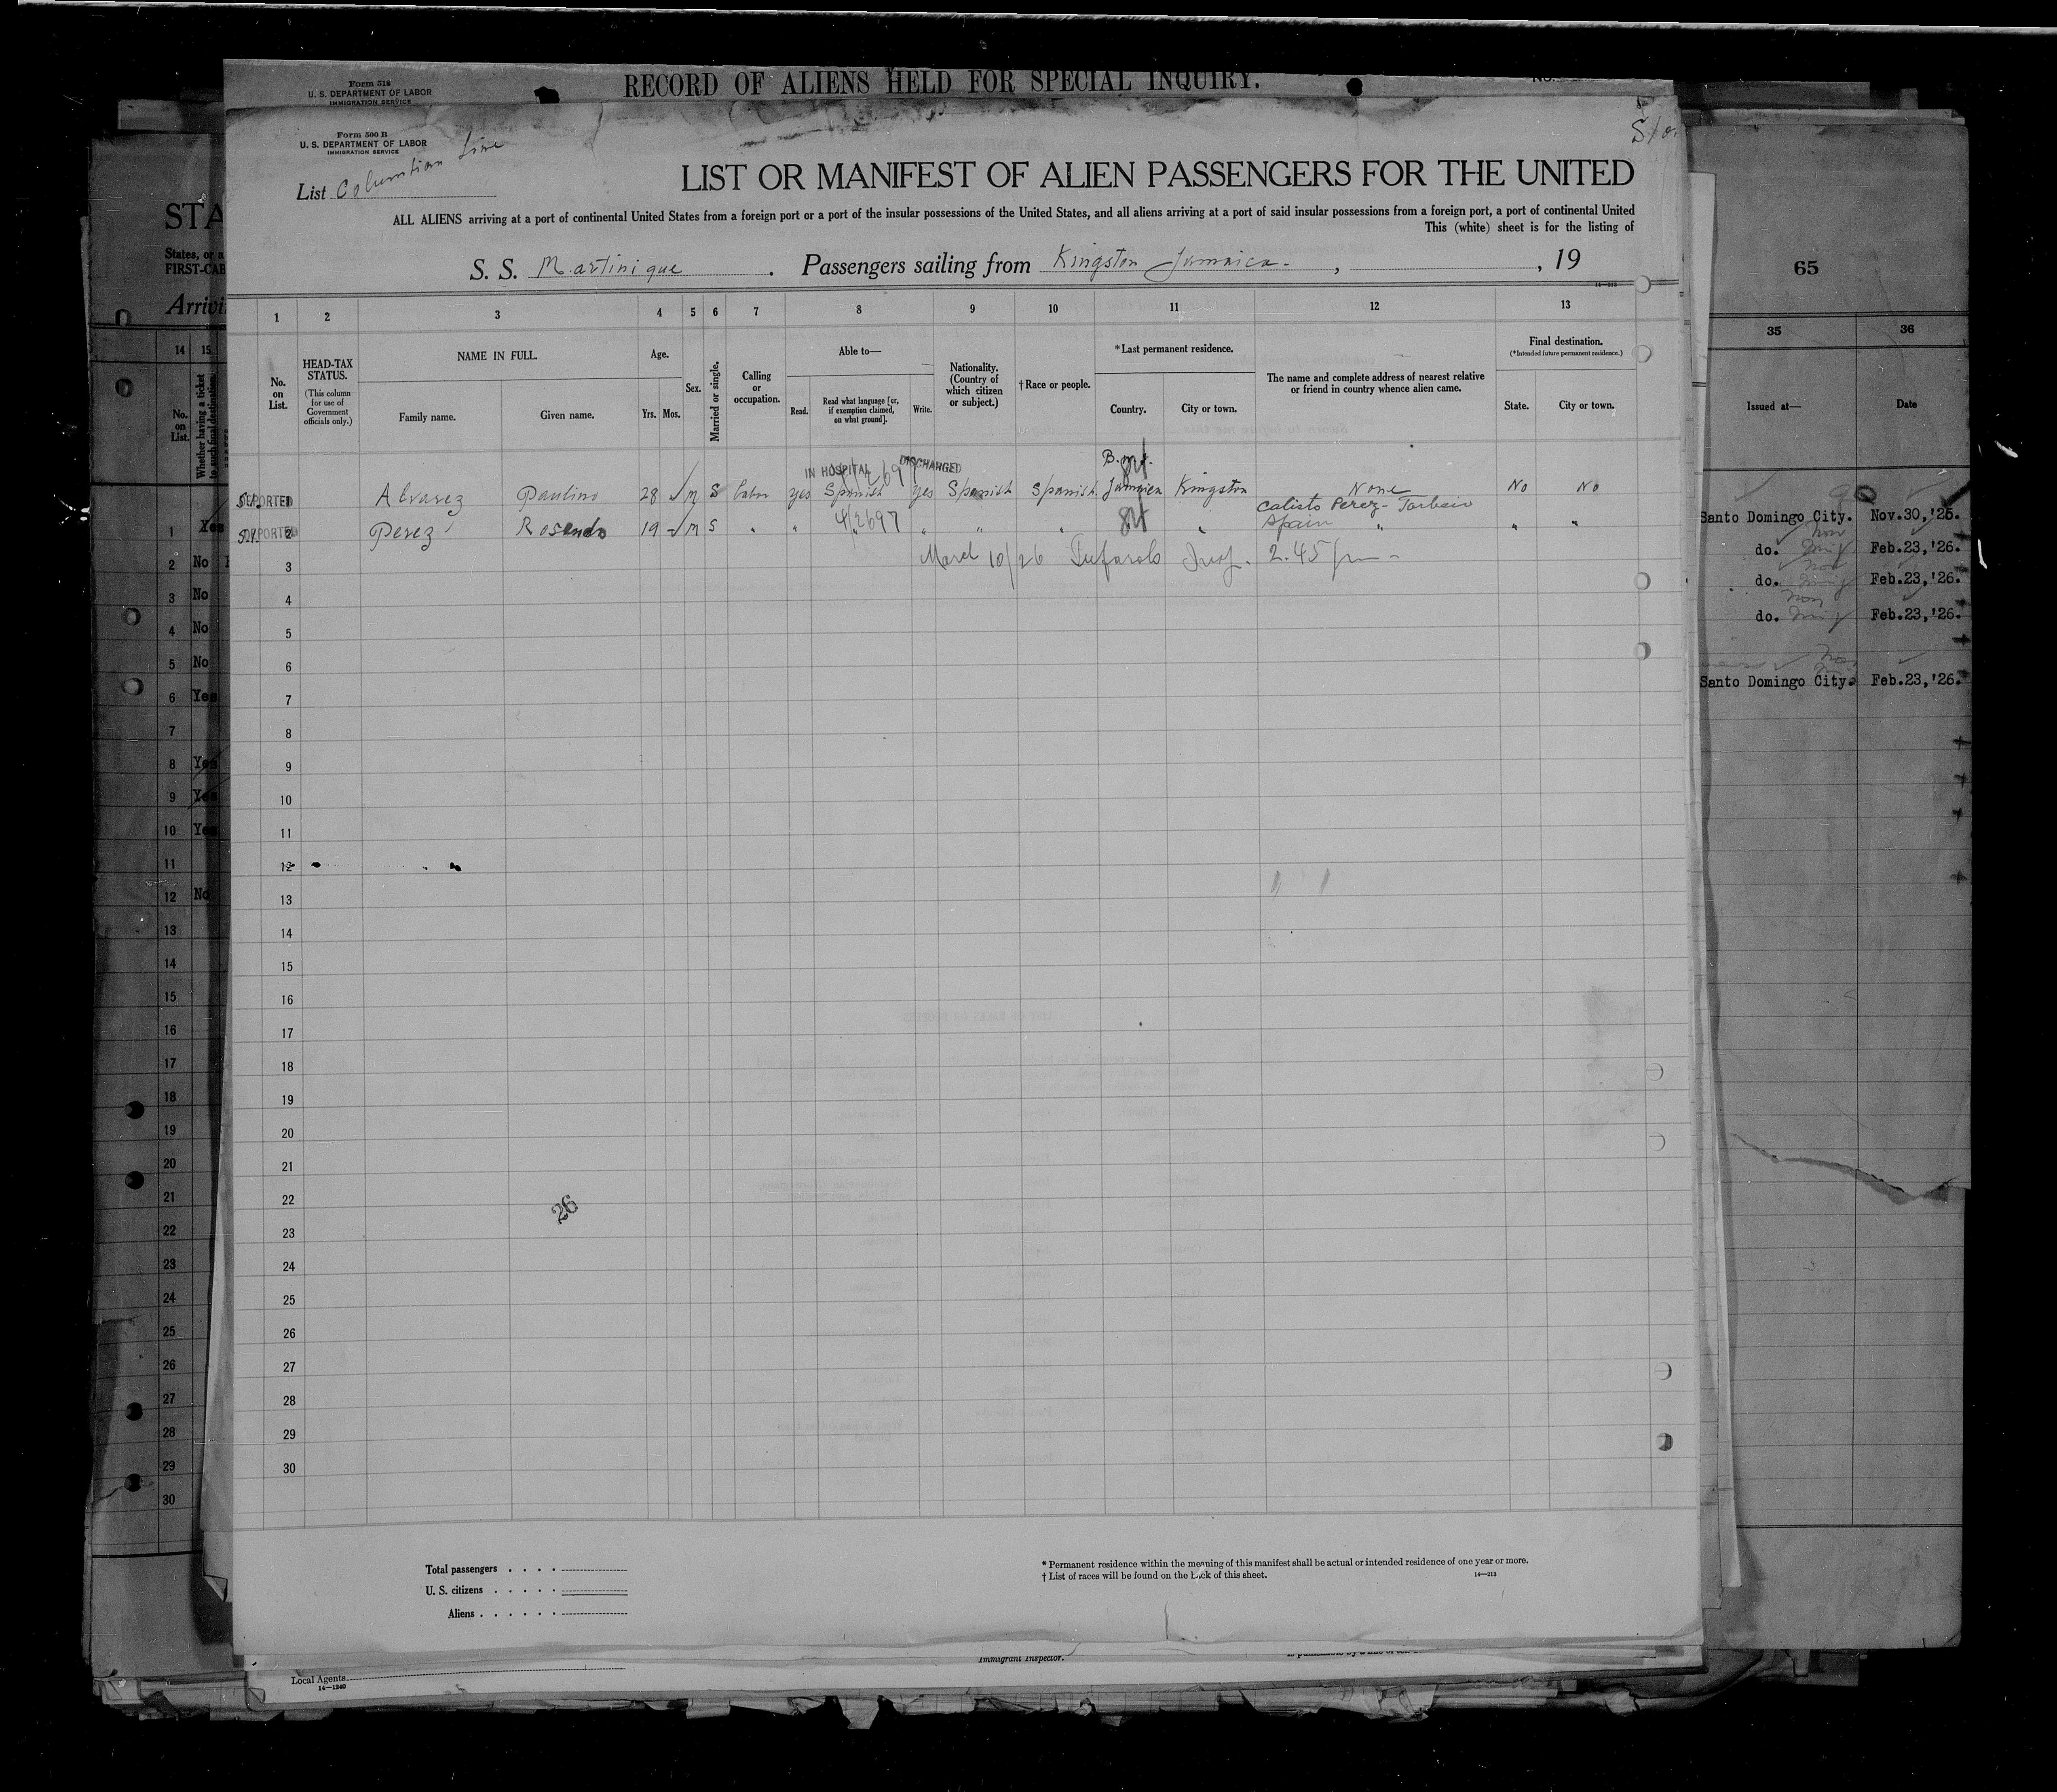 Form 518
U. S. DEPARTMENT OF LABOR
IMMIGRATION SERVICE
RECORD OF ALIENS HELD FOR SPECIAL INQUIRY.
No.
Form 500 B
U. S. DEPARTMENT OF LABOR
IMMIGRATION SERVICE
List Columbian Line
LIST OR MANIFEST OF ALIEN PASSENGERS FOR THE UNITED
ALL ALIENS arriving at a port of continental United States from a foreign port or a port of the insular possessions of the United States, and all aliens arriving at a port of said insular possessions from a foreign port, a port of continental United
This (white) sheet is for the listing of
S. S. Martinique . Passengers sailing from Kingston Jamaica - , , 19
14—213
1 2 3 4 5 6 7 8 9 10 11 12 13
No. on List.
HEAD-TAX STATUS.
(This column for use of Government officials only.)
NAME IN FULL.
Family name. Given name.
Age.
Yrs. Mos.
Sex.
Married or single.
Calling or occupation.
Able to—
Read. Read what language [or, if exemption claimed, on what ground]. Write.
Nationality. (Country of which citizen or subject.)
†Race or people.
*Last permanent residence.
Country. City or town.
The name and complete address of nearest relative or friend in country whence alien came.
Final destination.
(*Intended future permanent residence.)
State. City or town.
IN HOSPITAL DISCHARGED
DEPORTED 1 Alvarez Paulino 28 M S Labor yes Spanish yes Spanish Spanish Jamaica Kingston None No No
Calisto Perez - 
DEPORTED 2 Perez Rosendo 19 M S " " " " " " " Spain " " "
3 March 10/26 2.45 pm -
4
5
6
7
8
9
10
11
12
13
14
15
16
17
18
19
20
21
22
23
24
25
26
27
28
29
30
26
Total passengers
U. S. citizens
Aliens
* Permanent residence within the meaning of this manifest shall be actual or intended residence of one year or more.
† List of races will be found on the back of this sheet.
14—213
Local Agents.
14—1240
Immigrant Inspector.
STA
States, or a
FIRST-CAB
Arrivi
14 15
No. on List.
Whether having a ticket to such final destination.
1 Yes
2 No
3 No
4 No
5 No
6 Yes
7
8 Yes
9 Yes
10 Yes
11
12 No
13
14
15
16
17
18
19
20
21
22
23
24
25
26
27
28
29
30
65
35 36
Issued at— Date
Santo Domingo City. Nov.30,'25.
do. Feb.23,'26.
do. Feb.23,'26.
do. Feb.23,'26.
Santo Domingo City. Feb.23,'26.